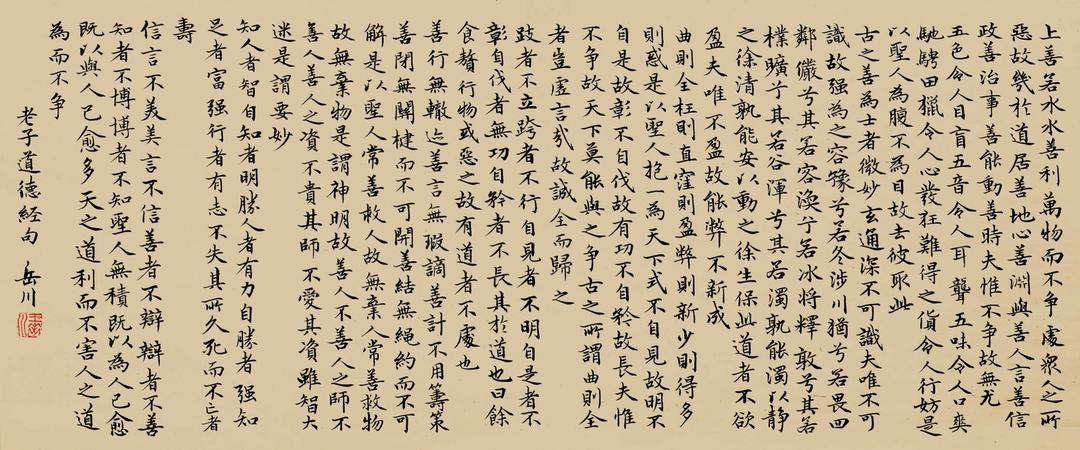 上善若水水善利萬物而不争處衆人之所
惡故幾於道居善地心善淵與善人言善信
政善治事善能動善時夫惟不争故無尤
五色令人目盲五音令人耳聾五味令人口爽
馳騁田獵令人心發狂難得之貨令人行妨是
以聖人為腹不為目故去彼取此
古之善為士者微妙玄通深不可識夫唯不可
識故强為之容豫兮若冬涉川猶兮若畏四
鄰儼兮其若容渙兮若冰将釋敦兮其若
樸曠兮其若谷渾兮其若濁孰能濁以静
之徐清孰能安以動之徐生保此道者不欲
盈夫唯不盈故能弊不新成
曲則全枉則直窪則盈弊則新少則得多
則惑是以聖人抱一為天下式不自見故明不
自是故彰不自伐故有功不自矜故長夫惟
不争故天下莫能與之争古之所謂曲則全
者豈虚言哉故誠全而歸之
跂者不立跨者不行自見者不明自是者不
彰自伐者無功自矜者不長其於道也曰餘
食贅行物或惡之故有道者不處也
善行無轍迹善言無瑕謫善計不用籌策
善閉無關楗而不可開善結無繩約而不可
解是以聖人常善救人故無棄人常善救物
故無棄物是謂神明故善人不善人之師不
善人善人之資不貴其師不愛其資雖智大
迷是謂要妙
知人者智自知者明勝人者有力自勝者强知
足者富强行者有志不失其所久死而不亡者
壽
信言不美美言不信善者不辯辯者不善
知者不博博者不知聖人無積既以為人已愈
既以與人已愈多天之道利而不害人之道
為而不争
老子道德經句 岳川